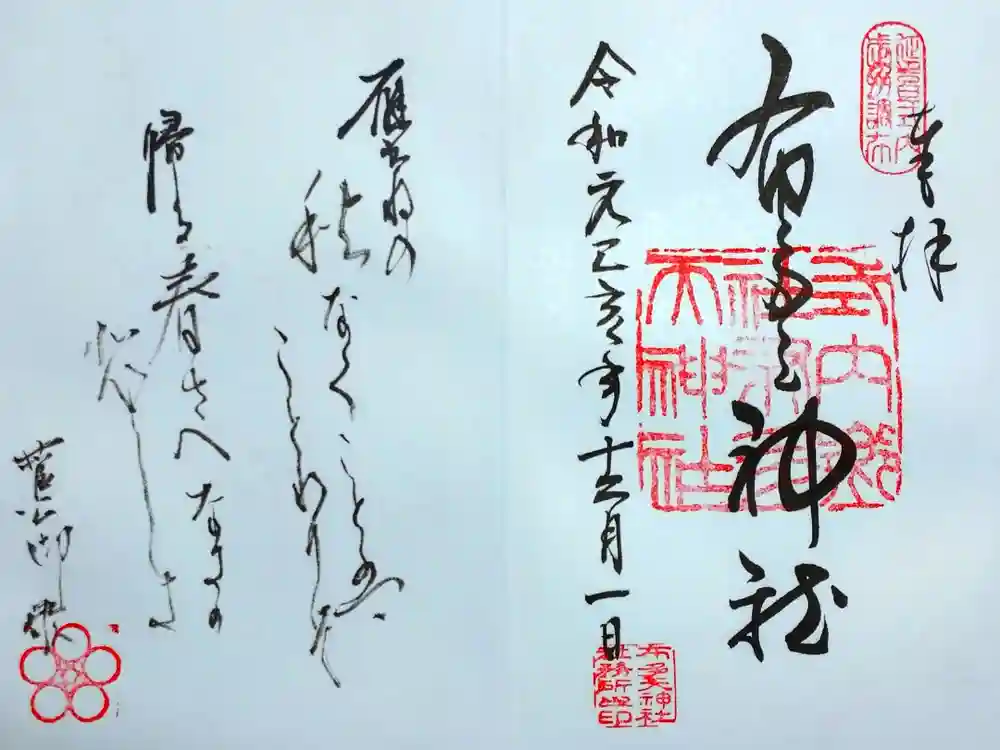 奉拝
延喜式内
武州調布
布多天神社
令和元己亥年十二月一日
布多天神社
社務所之印
雁かねの
秋なくことハ
ことわりそ
帰る春さへなにか
かなしき
菅公御歌